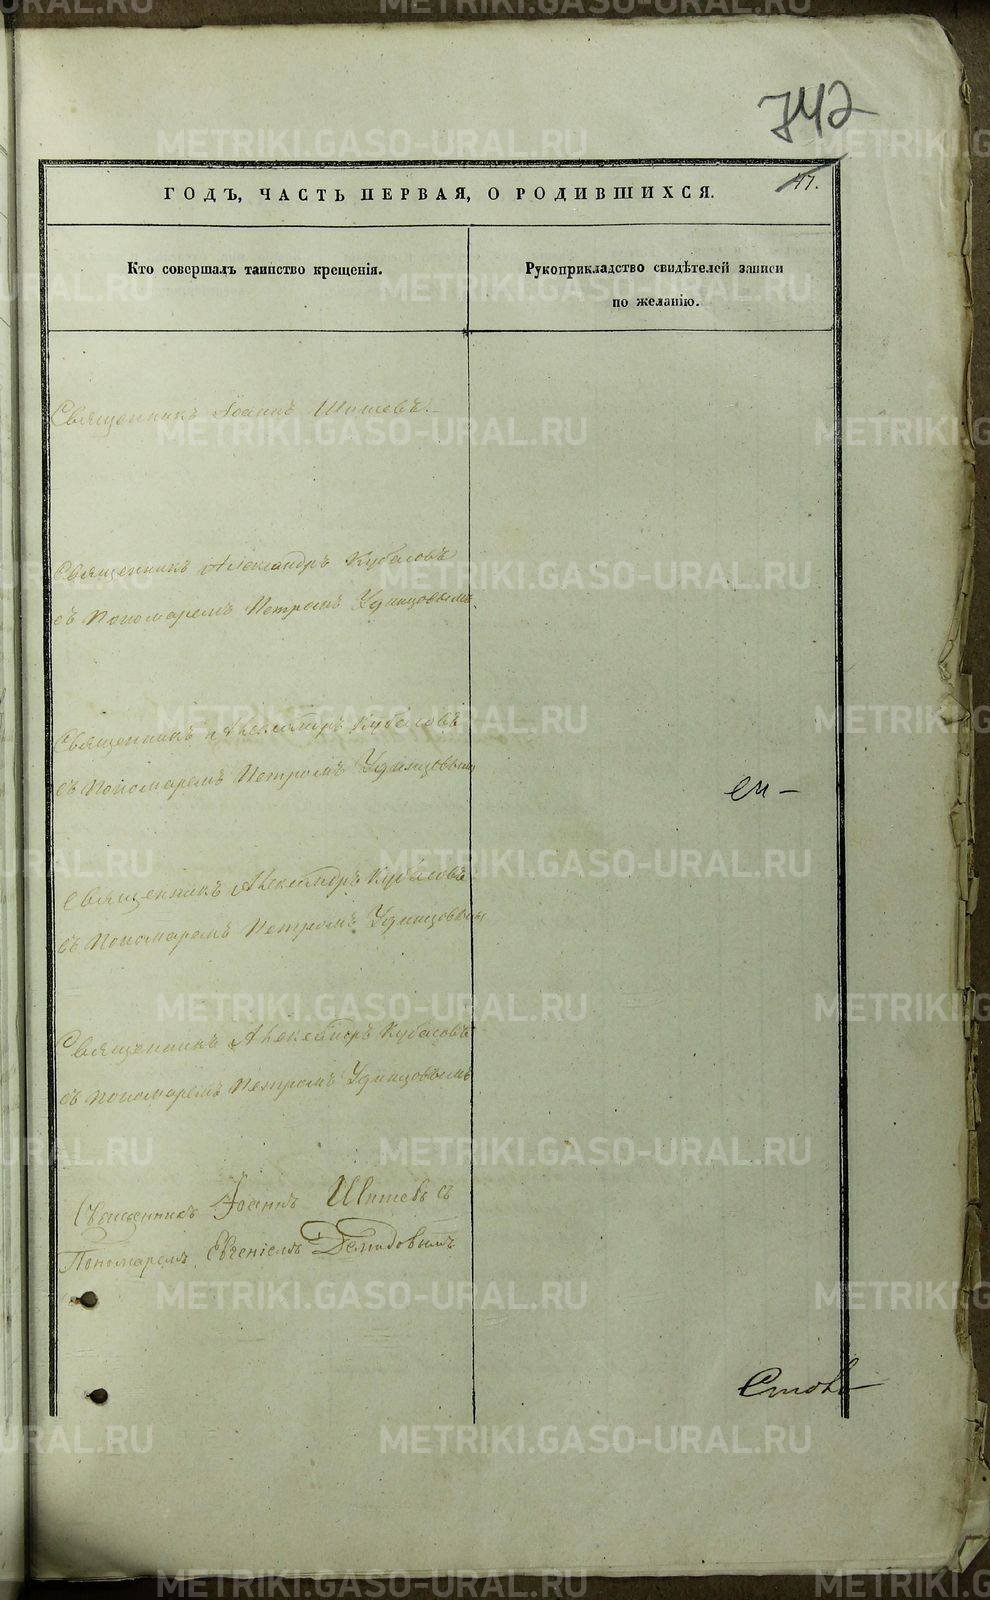 742
47.
ГОДЪ, ЧАСТЬ ПЕРВАЯ, О РОДИВШИХСЯ.
Кто совершалъ таинство крещенія.
Рукоприкладство свидѣтелей записи
по желанію.
Священникъ Іоаннъ Шишевъ.
Священникъ Александръ Кубасовъ
съ Пономаремъ Петромъ Удинцовымъ.
Священникъ Александръ Кубасовъ
съ Пономаремъ Петромъ Удинцовымъ
Священникъ Александръ Кубасовъ
съ Пономаремъ Петромъ Удинцовымъ
Священникъ Александръ Кубасовъ
съ Пономаремъ Петромъ Удинцовымъ
Священникъ Іоаннъ Шишевъ съ
Пономаремъ Евгеніемъ Демидовымъ
METRIKI.GASO-URAL.RU